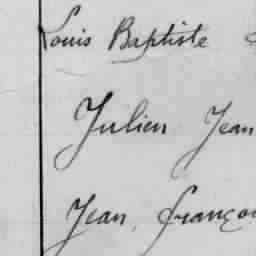 Louis Baptiste
Julien Jean
Jean, françoi